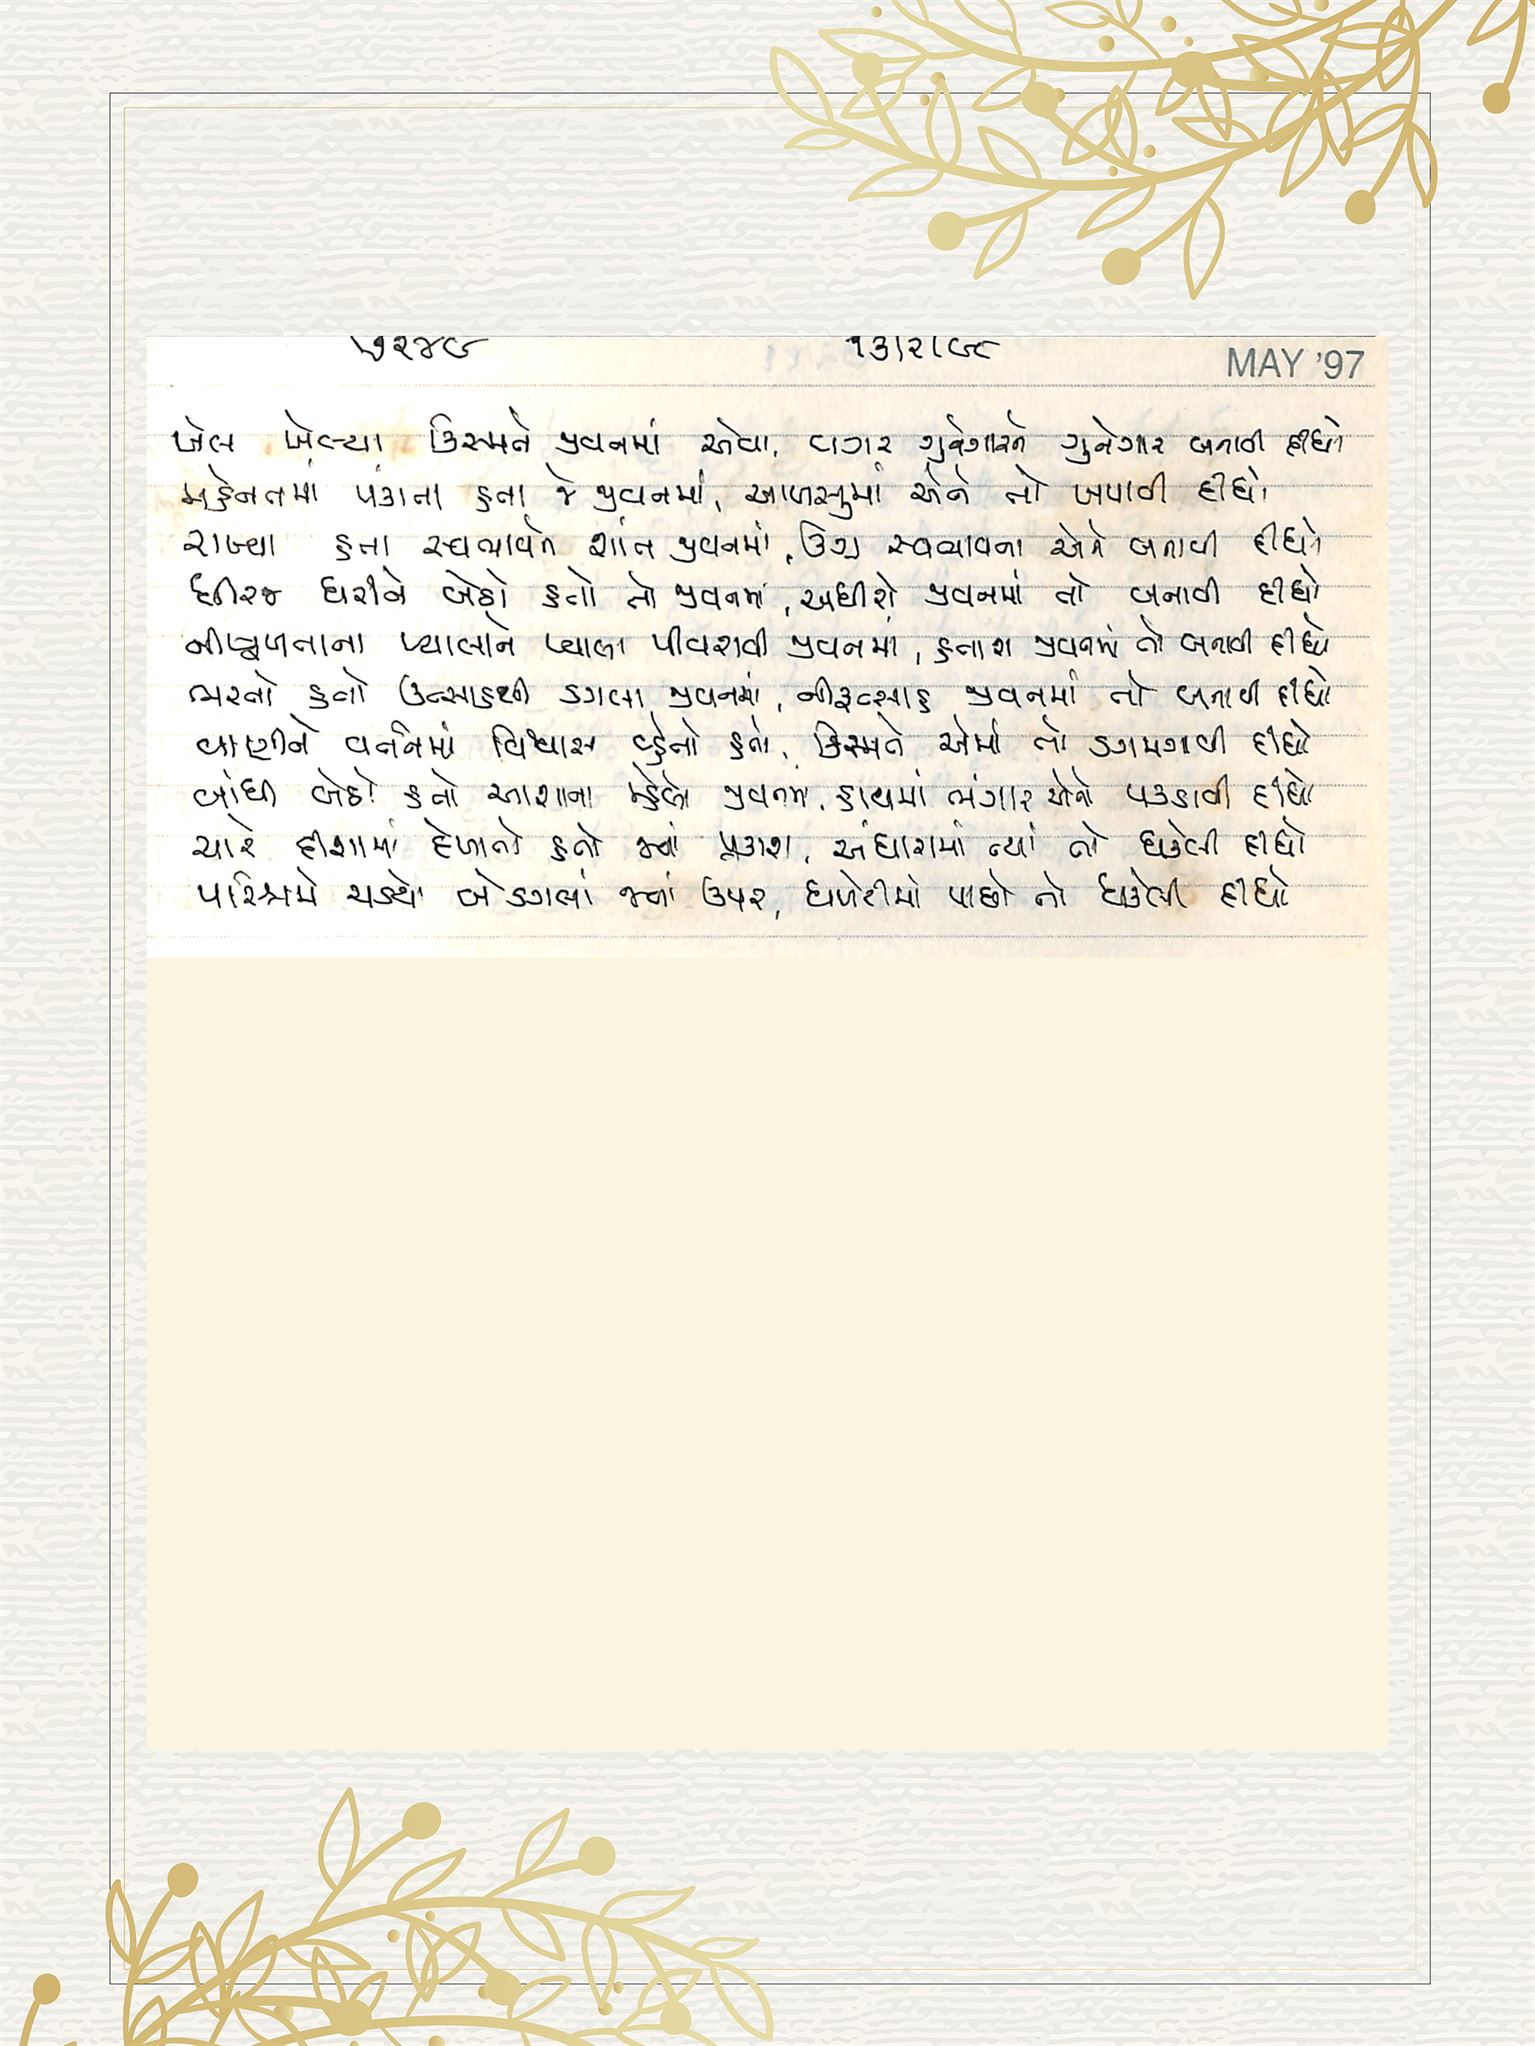 ૫૨૪૯ ૧૩।૨।૯૮ MAY '97
ખેલ ખેલ્યા કિસ્મતે જીવનમાં એવા, વગર ગુનેગારને ગુનેગાર બનાવી દીધો
મહેનતમાં પંકાતા હતા જે જીવનમાં, આળસુમાં એને તો ખપાવી દીધો
રાખ્યા હતા સ્વભાવને શાંત જીવનમાં, ઉગ્ર સ્વભાવના એને બનાવી દીધો
ધીરજ ધરીને બેઠો હતો તો જીવનમાં, અધીરો જીવનમાં તો બનાવી દીધો
નીષ્ફળતાના પ્યાલાને પ્યાલા પીવરાવી જીવનમાં, હતાશ જીવનમાં તો બનાવી દીધો
ભરતો હતો ઉત્સાહથી ડગલા જીવનમાં, નીરૂત્સાહ જીવનમાં તો બનાવી દીધો
વાણીને વર્તનમાં વિશ્વાસ વ્હેતો હતો, કિસ્મતે એમાં તો ડગમગાવી દીધો
બાંધી બેઠો હતો આશાના મ્હેલો જીવનમાં, હાથમાં ભંગાર એનો પકડાવી દીધો
ચારે દીશામાં દેખાતો હતો જ્યાં પ્રકાશ, અંધારામાં ત્યાં તો ધકેલી દીધો
પરિશ્રમે ચડયો બે ડગલાં જ્યાં ઉપર, ધળેટીમાં પાછો તો ધકેલી દીધો